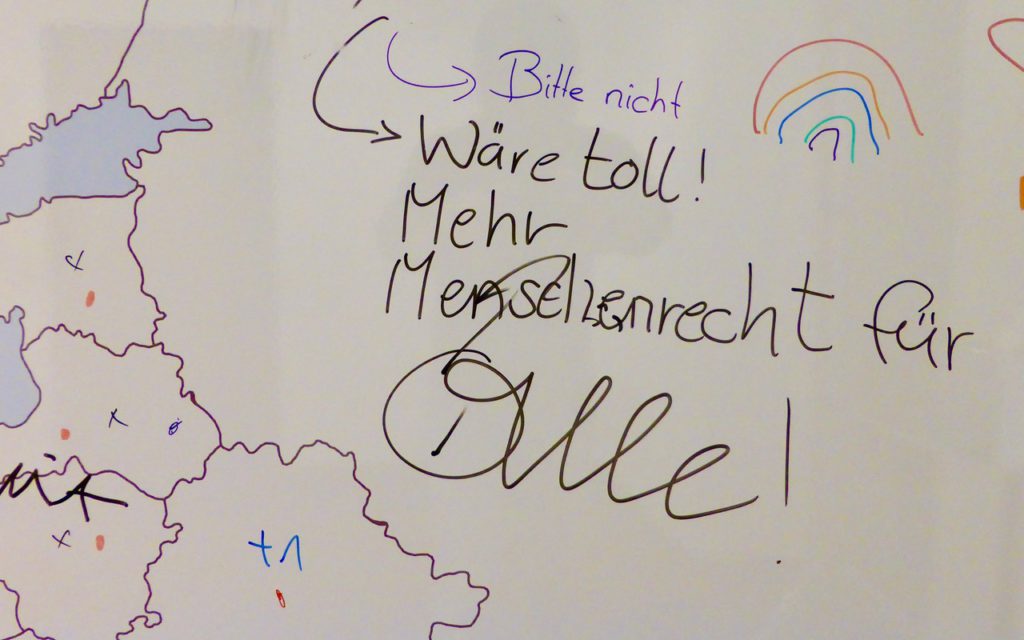 Bitte nicht
Wäre toll!
Mehr
Menschenrecht für
Alle!
+1